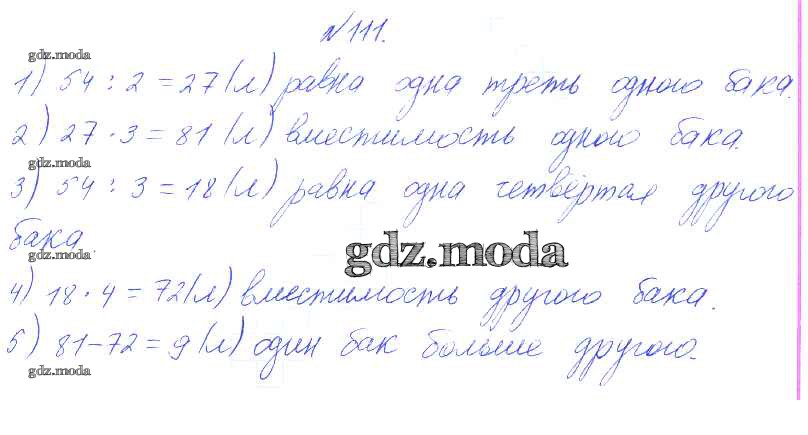 №111.
gdz.moda
1) 54 : 2 = 27 (л) равна одна треть одного бака.
2) 27 · 3 = 81 (л) вместимость одного бака.
gdz.moda
3) 54 : 3 = 18 (л) равна одна четвёртая другого
бака.
gdz.moda
gdz.moda
4) 18 · 4 = 72 (л) вместимость другого бака.
5) 81 - 72 = 9 (л) один бак больше другого.
gdz.moda